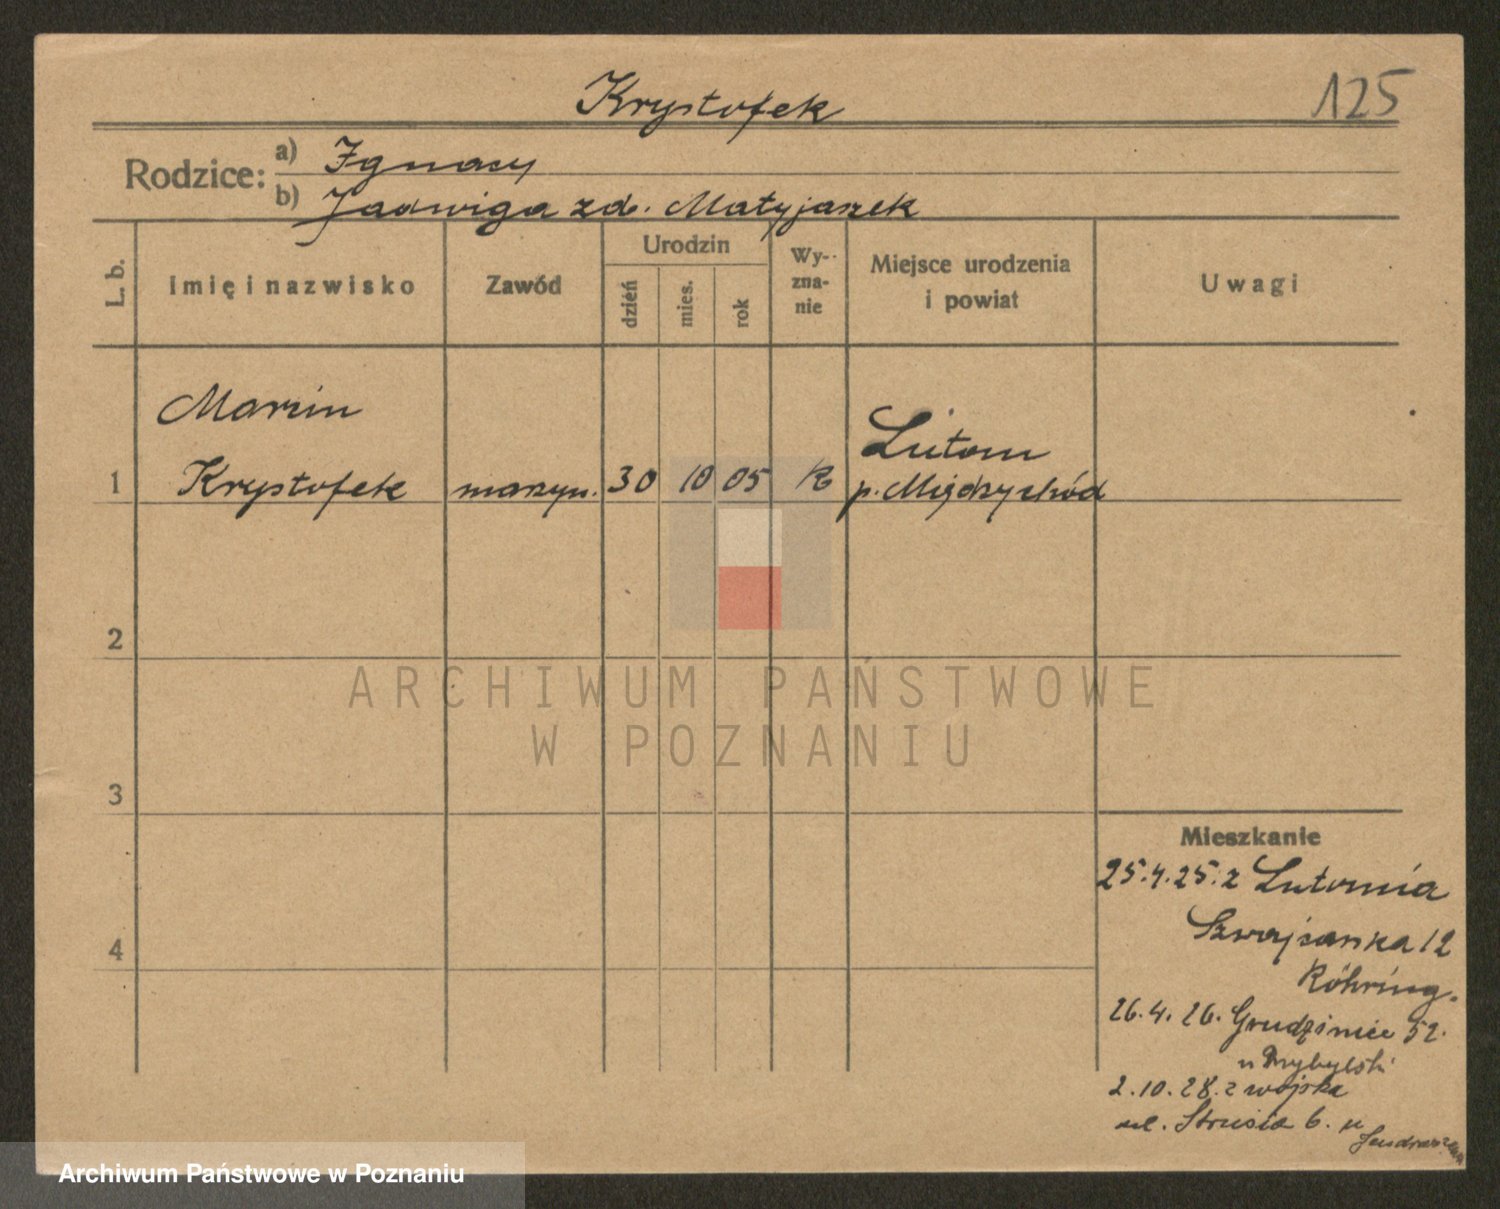 Krystofek
125
Rodzice: a) Ignacy
b) Jadwiga zd. Matyjaszek
L. b.
Imię i nazwisko
Zawód
Urodzin
dzień
mies.
rok
Wy-
zna-
nie
Miejsce urodzenia
i powiat
Uwagi
Marcin
Krystofek
1
maszyn.
30
10
05
R
Lutom
p. Międzychód
2
3
4
Mieszkanie
25.4.25. z Lutomia
Szwajcarska 12
Röhring.
26.4.26. Grudzieniec 52.
u Przybylski
2.10.28. z wojska
ul. Strusia 6. u
ARCHIWUM PAŃSTWOWE
W POZNANIU
Archiwum Państwowe w Poznaniu